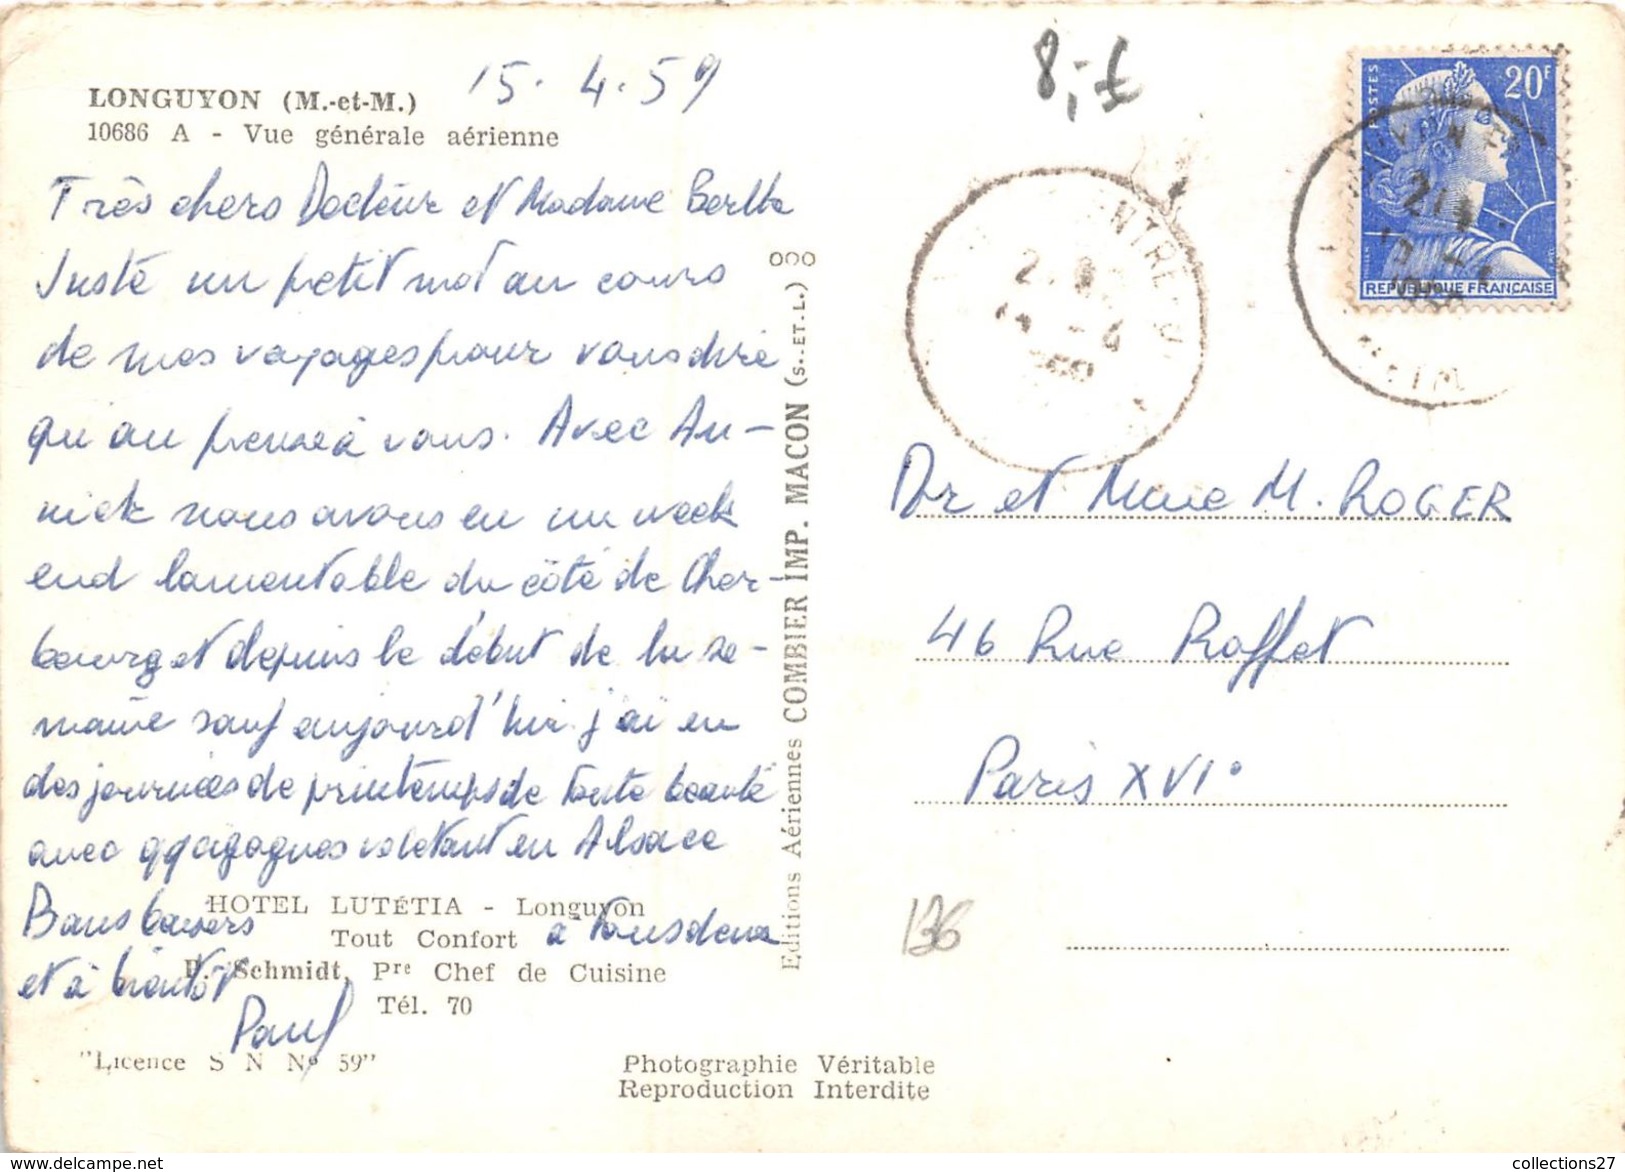 LONGUYON (M.-et-M.) 15.4.59
10686 A - Vue générale aérienne
Très chers Docteur et Madame
Juste un petit mot au cours
de mes voyages pour vous dire
qu'on pense à vous. Avec An-
nick nous avons eu un week
end lamentable du côté de Cher-
bourg et depuis le début de la se-
maine sauf aujourd'hui j'ai eu
des journées de printemps de toute beauté
avec cigognes voletant en Alsace
Bons baisers à tous deux
et à bientôt
Paul
HOTEL LUTÉTIA - Longuyon
Tout Confort
Schmidt, Pre Chef de Cuisine
Tél. 70
"Licence S N No 59"
Photographie Véritable
Reproduction Interdite
Editions Aériennes COMBIER IMP. MACON (S.-ET-L.)
8,-£
POSTES
20F
REPUBLIQUE FRANÇAISE
Dr et Mme M. ROGER
46 Rue Raffet
Paris XVI°
136
collections27